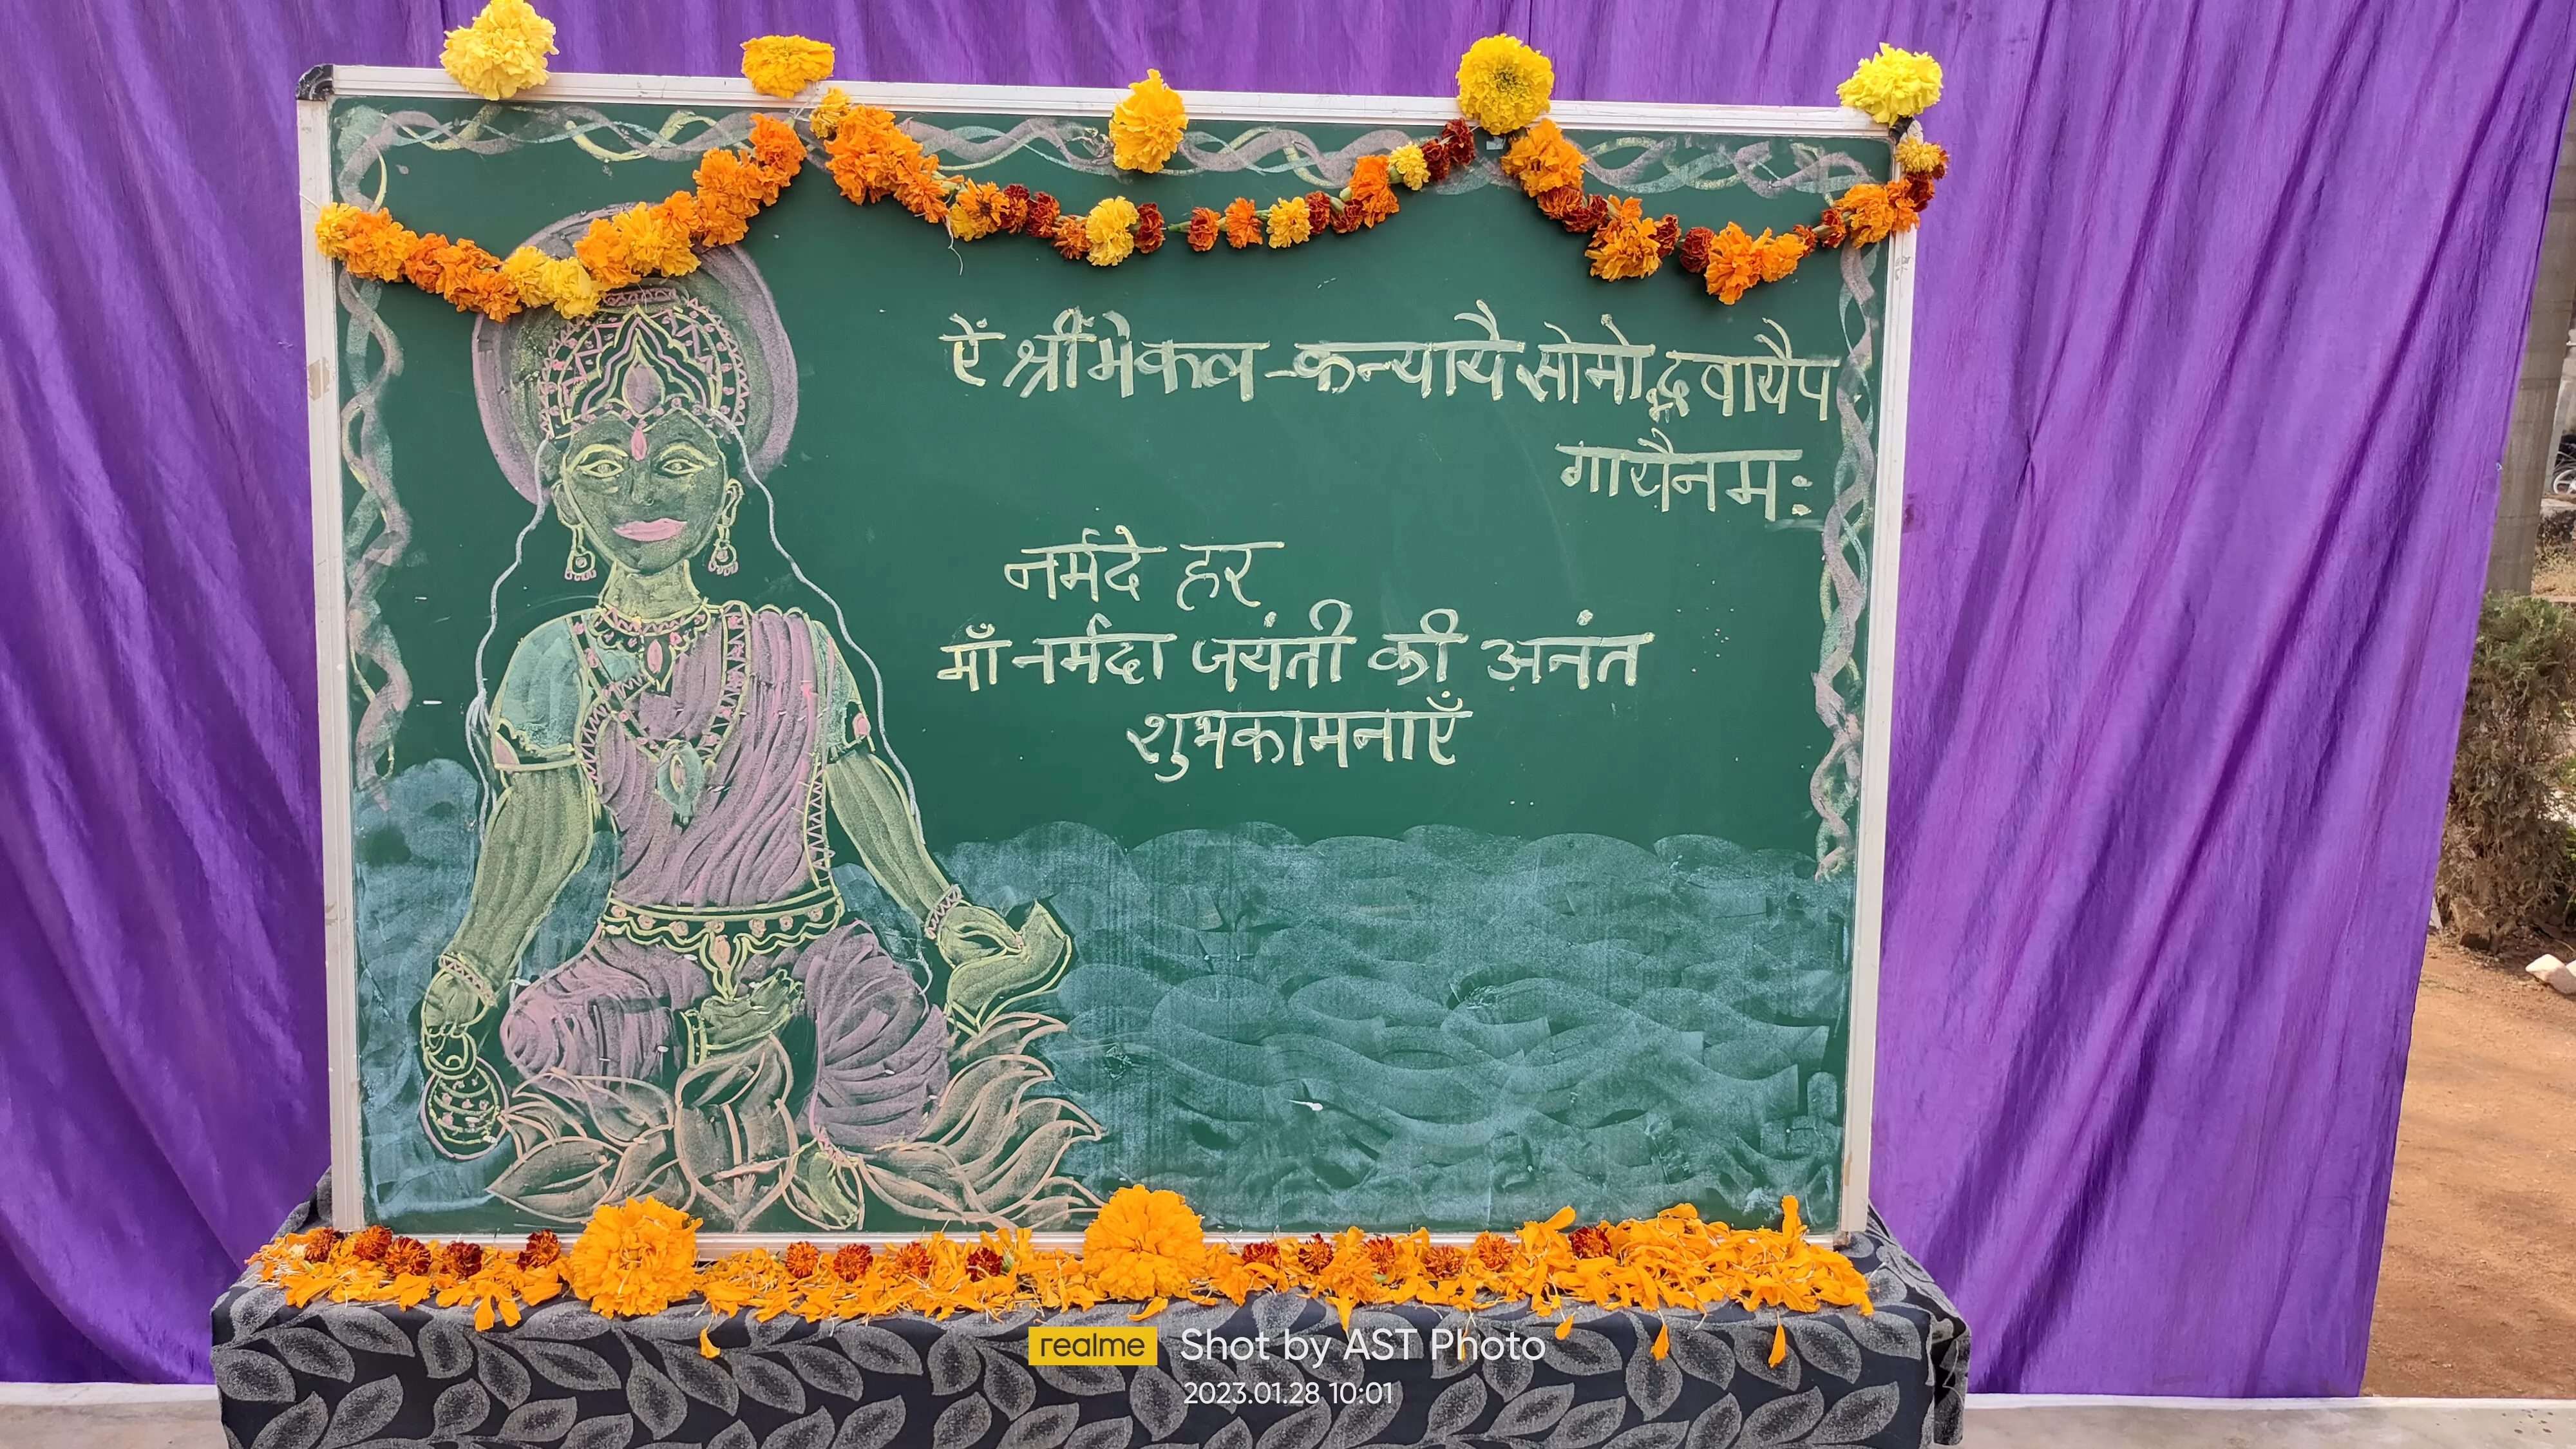 ऐं श्रीं मेकल-कन्यायै सोमोद्भवायै प
गायै नम:
नर्मदे हर
माँ नर्मदा जयंती की अनंत
शुभकामनाएँ
realme Shot by AST Photo
2023.01.28 10:01